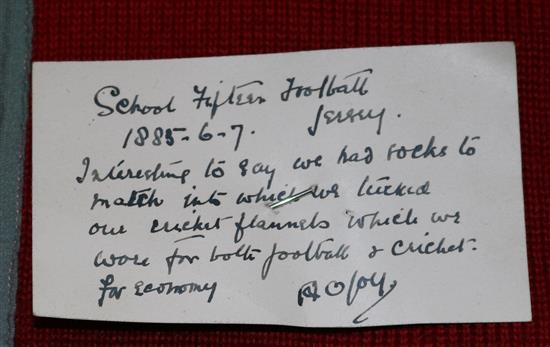 School Fifteen Football
1885-6-7. Jersey.
Interesting to say we had socks to
match into which we tucked
our cricket flannels which we
wore for both football & cricket.
for economy